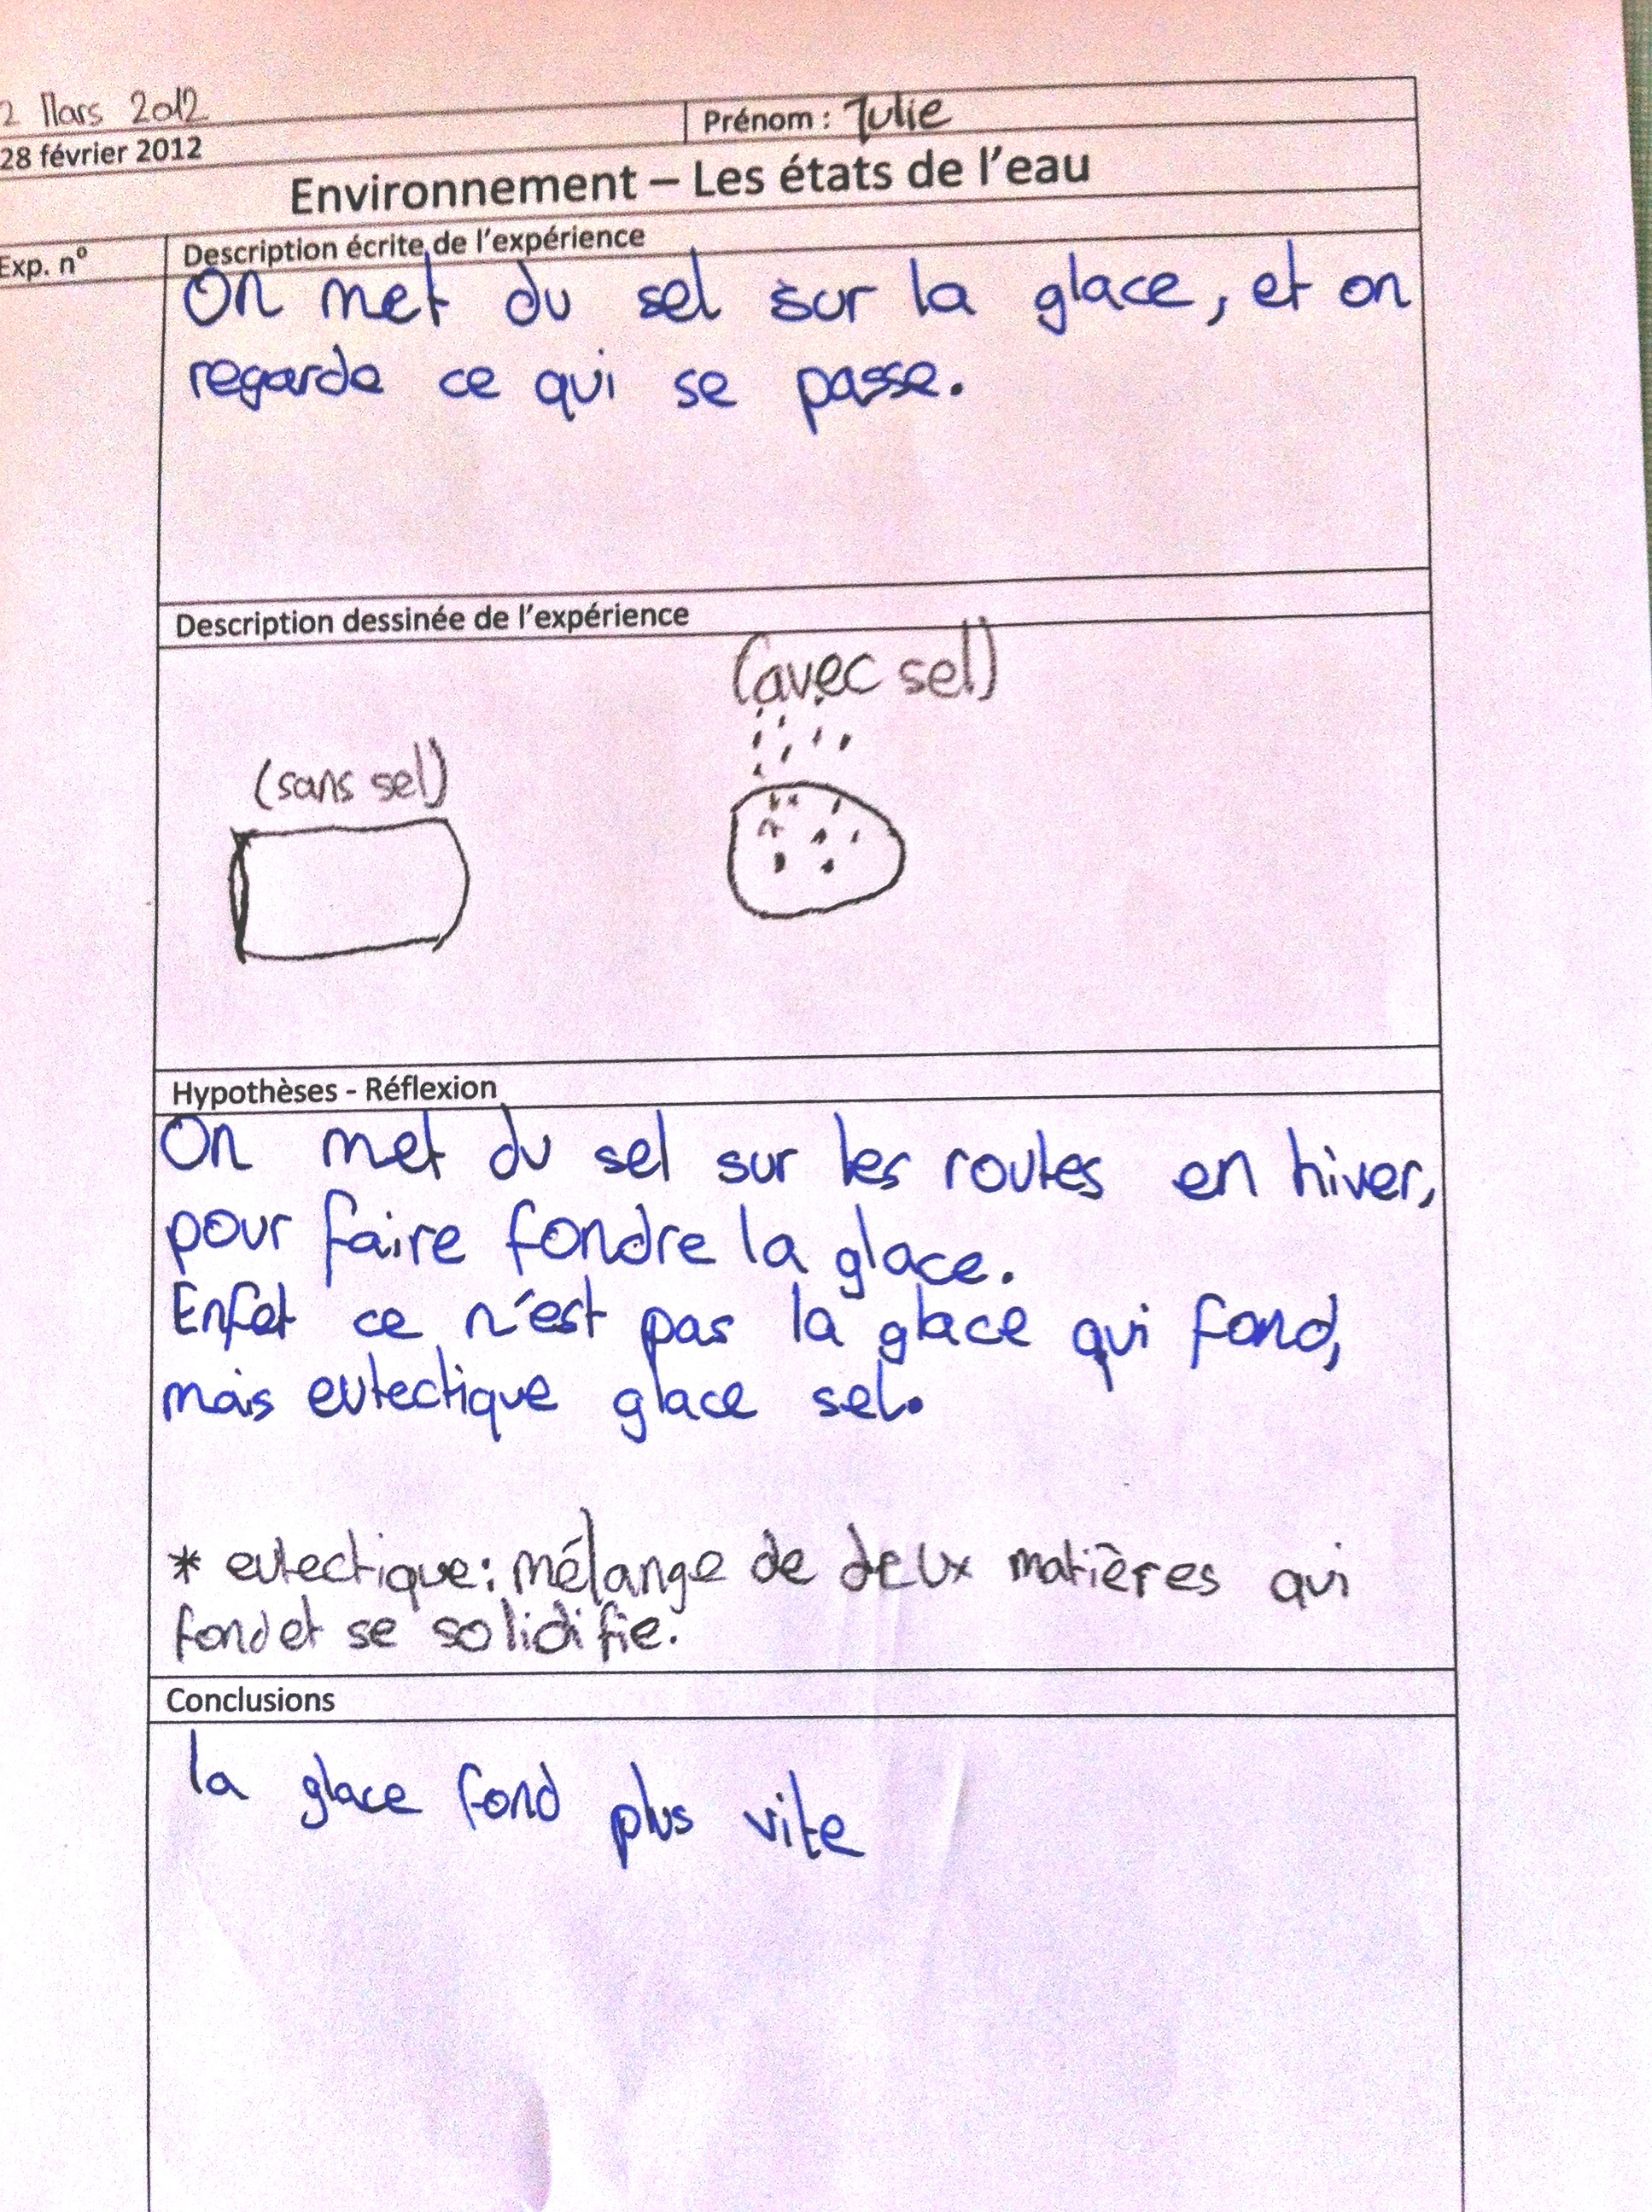 2 Mars 2012
Prénom : Julie
28 février 2012
Environnement – Les états de l'eau
Exp. n°
Description écrite de l'expérience
On met du sel sur la glace, et on
regarde ce qui se passe.
Description dessinée de l'expérience
(avec sel)
(sans sel)
Hypothèses - Réflexion
On met du sel sur les routes en hiver,
pour faire fondre la glace.
Enfet ce n'est pas la glace qui fond,
mais eutectique glace sel.
* eutectique: mélange de deux matières qui
fond et se solidifie.
Conclusions
la glace fond plus vite